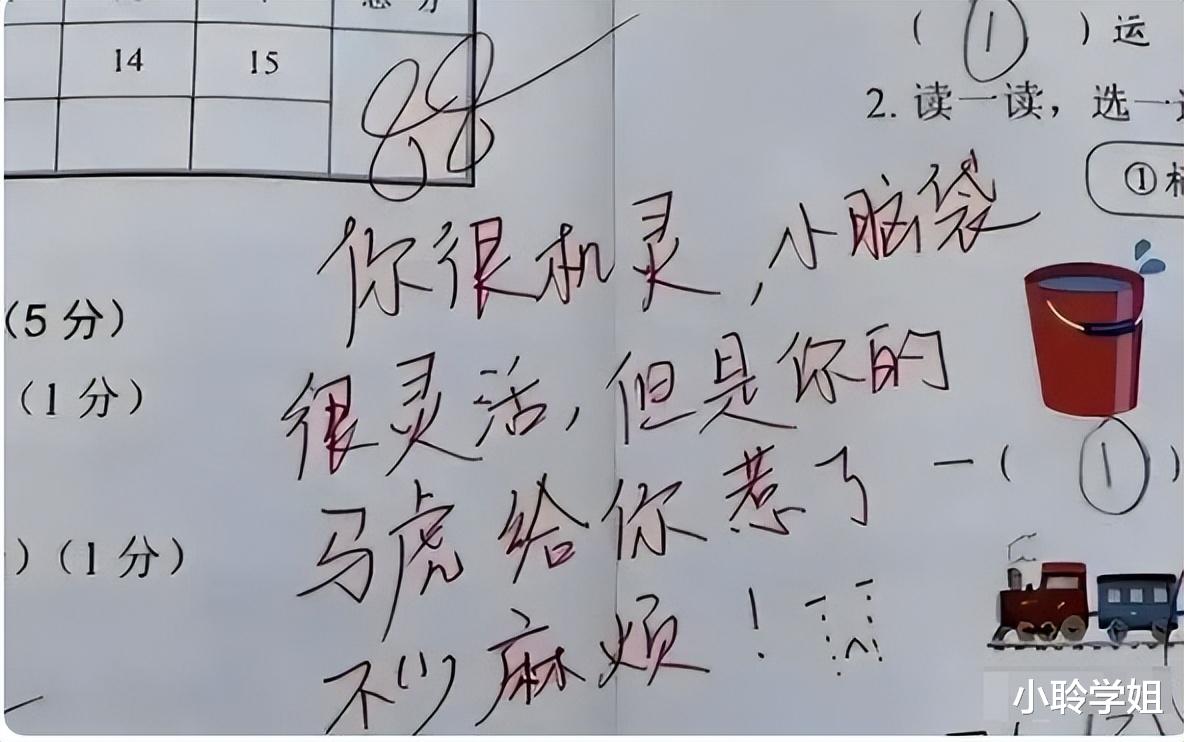 14 15
88
( 1 ) 运
2. 读一读，选一
①
你很机灵，小脑袋
很灵活，但是你的
马虎给你惹了
不少麻烦！
(5 分)
(1 分)
) (1 分)
( 1 )
小聆学姐